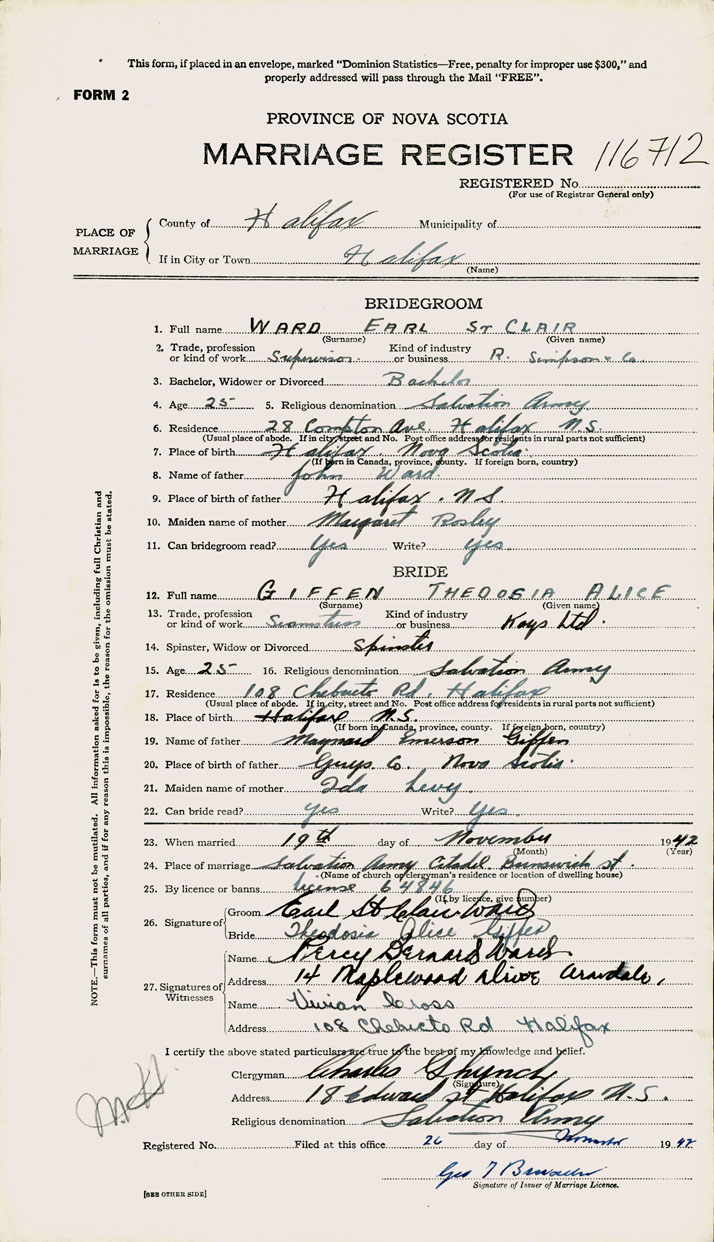 This form, if placed in an envelope, marked “Dominion Statistics—Free, penalty for improper use $300,” and
properly addressed will pass through the Mail “FREE”.
FORM 2
PROVINCE OF NOVA SCOTIA
MARRIAGE REGISTER 116712
REGISTERED No.
(For use of Registrar General only)
PLACE OF MARRIAGE
County of Halifax Municipality of
If in City or Town Halifax
(Name)
BRIDEGROOM
1. Full name WARD EARL ST CLAIR
(Surname) (Given name)
2. Trade, profession or kind of work Supervisor Kind of industry or business R. Simpson & Co.
3. Bachelor, Widower or Divorced Bachelor
4. Age 25 5. Religious denomination Salvation Army
6. Residence 28 Compton Ave Halifax N.S.
(Usual place of abode. If in city, street and No. Post office address for residents in rural parts not sufficient)
7. Place of birth Halifax. Nova Scotia.
(If born in Canada, province, county. If foreign born, country)
8. Name of father John Ward.
9. Place of birth of father Halifax. N.S.
10. Maiden name of mother Margaret Rosley
11. Can bridegroom read? Yes Write? Yes.
BRIDE
12. Full name GIFFEN THEODOSIA ALICE
(Surname) (Given name)
13. Trade, profession or kind of work Seamstress Kind of industry or business Kays Ltd.
14. Spinster, Widow or Divorced Spinster
15. Age 25 16. Religious denomination Salvation Army
17. Residence 108 Chebucto Rd. Halifax
(Usual place of abode. If in city, street and No. Post office address for residents in rural parts not sufficient)
18. Place of birth Halifax N.S.
(If born in Canada, province, county. If foreign born, country)
19. Name of father Maynard Emerson Giffen
20. Place of birth of father Guys Co. Nova Scotia.
21. Maiden name of mother Ida Levy.
22. Can bride read? Yes Write? Yes.
23. When married 19th day of November 1942
(Month) (Year)
24. Place of marriage Salvation Army Citadel Brunswick St.
(Name of church or clergyman's residence or location of dwelling house)
25. By licence or banns license 64846
(If by licence, give number)
26. Signature of
Groom Earl St Clair Ward
Bride Theodosia Alice Giffen
27. Signatures of Witnesses
Name Percy Bernard Ward
Address 14 Maplewood Drive Armdale,
Name Vivian Cross
Address 108 Chebucto Rd Halifax
I certify the above stated particulars are true to the best of my knowledge and belief.
Clergyman Charles
(Signature)
Address 18 Edward St Halifax N.S.
Religious denomination Salvation Army
Registered No. Filed at this office 26 day of November 1942
Geo T
Signature of Issuer of Marriage Licence.
[SEE OTHER SIDE]
NOTE.—This form must not be mutilated. All information asked for is to be given, including full Christian and
surnames of all parties, and if for any reason this is impossible, the reason for the omission must be stated.